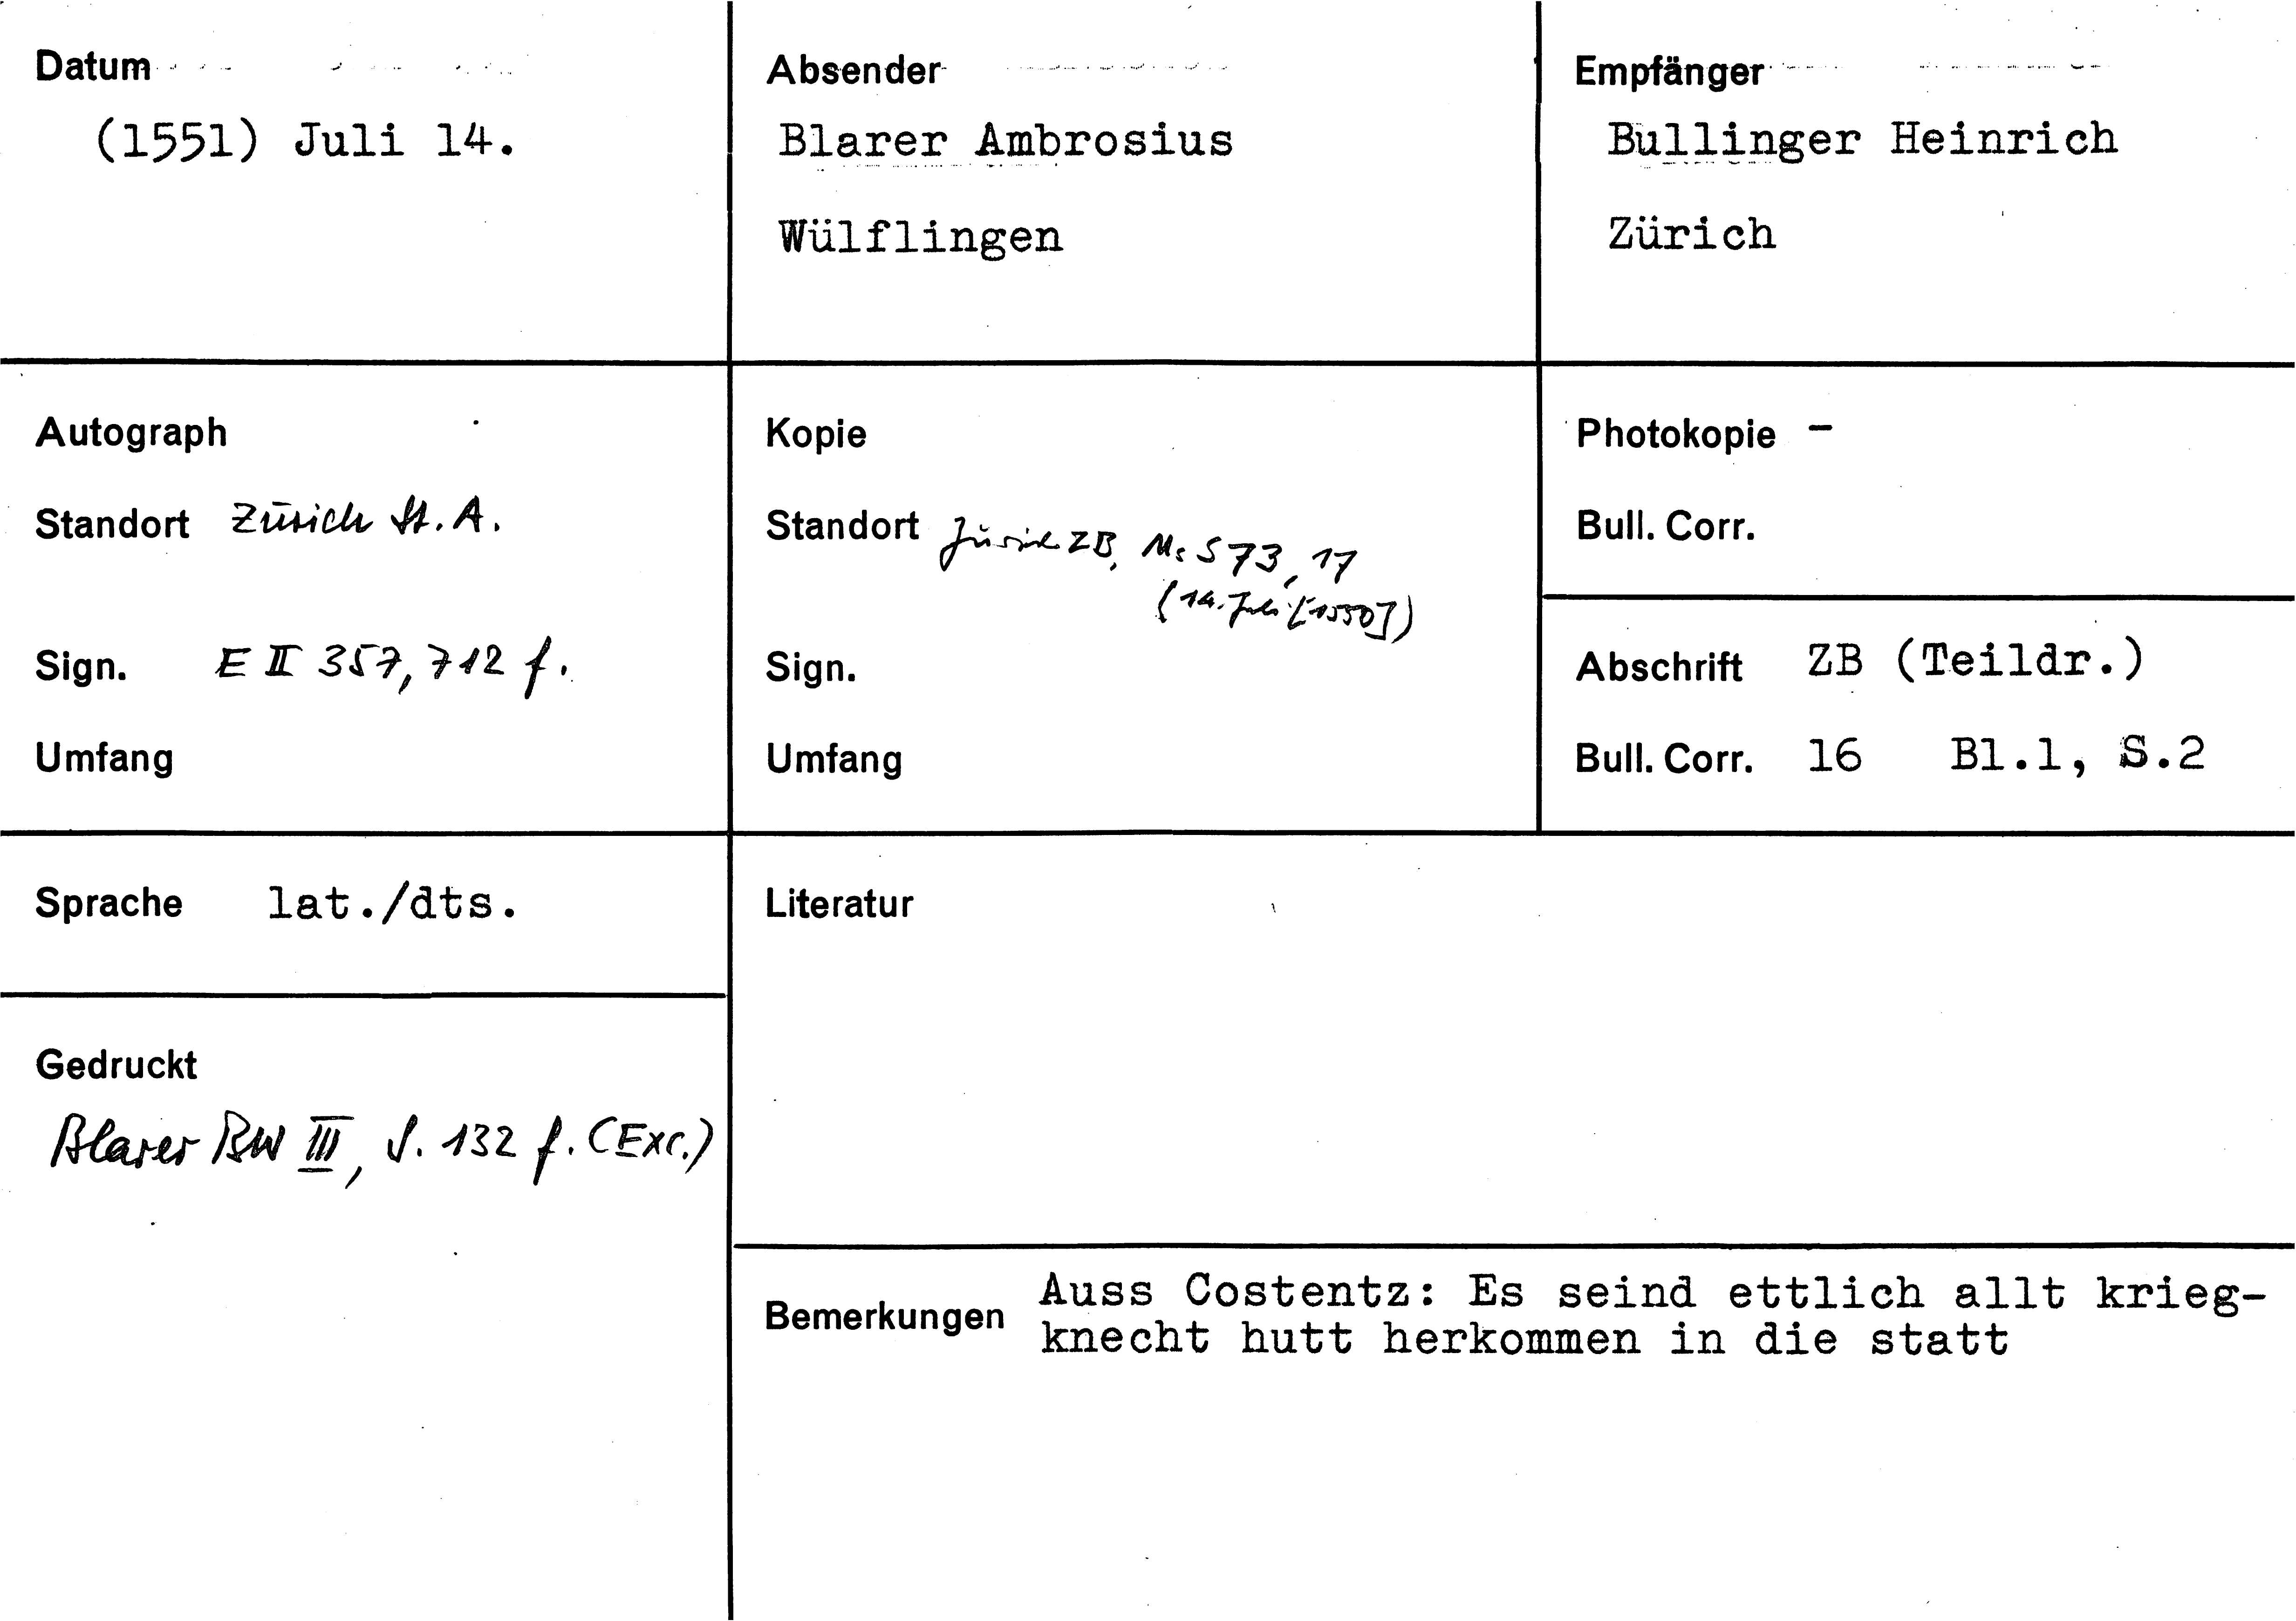 Datum
(1551) Juli 14.
Absender
Blarer Ambrosius
Wülflingen
Empfänger
Bullinger Heinrich
Zürich
Autograph
Standort Zürich St. A.
Sign. E II 357, 712 f.
Umfang
Kopie
Standort Zürich ZB, Ms S 73, 17
(14. Juli [1550])
Sign.
Umfang
Photokopie -
Bull. Corr.
Abschrift ZB (Teildr.)
Bull. Corr. 16 Bl.1, S.2
Sprache lat./dts.
Gedruckt
Blarer BW III, S. 132 f. (Exc.)
Literatur
Bemerkungen Auss Costentz: Es seind ettlich allt krieg-
knecht hutt herkommen in die statt